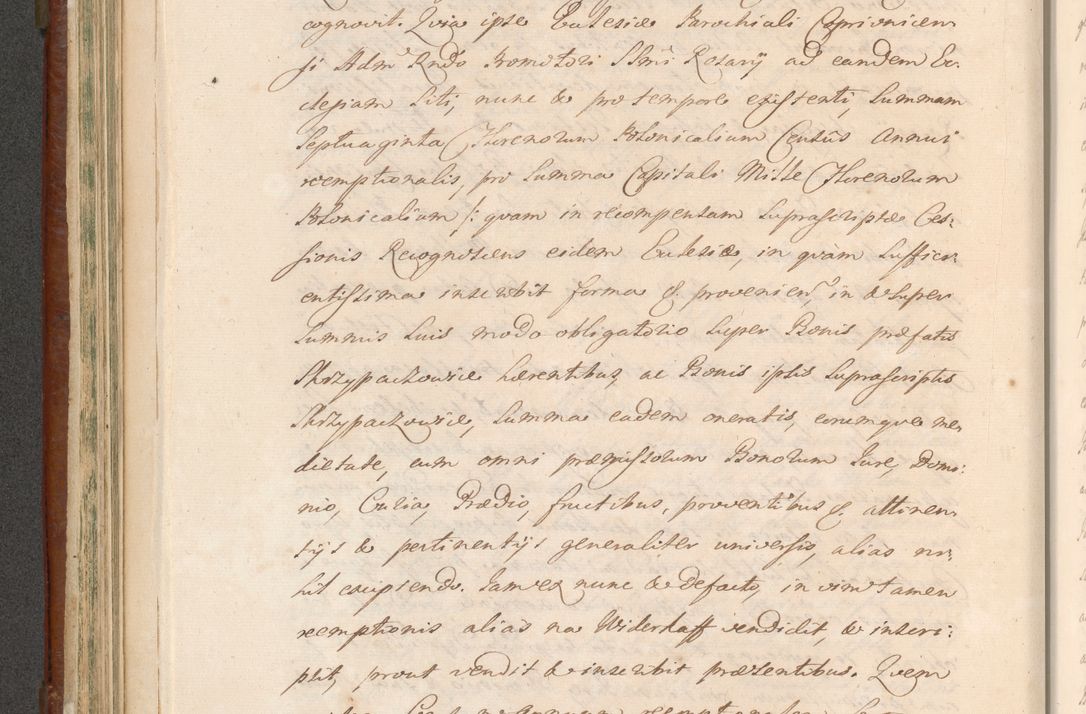 cognovit. Quia ipse Ecclesiæ Parochiali Caprionicen
si Adm Rndo Promotori SSmi Rosarÿ ad eandem Ec-
clesiam siti, nunc & pro tempore existenti, summam
septuaginta Florenorum Polonicalium Census annui
reemptionalis, pro summa Capitali Mille Florenorum
Polonicalium /: quam in recompensam suprascriptæ Ces-
sionis Recognoscens eidem Ecclesiæ, in quàm suffici-
entissima inscribit forma &. provenien, in & super
summis suis modo obligatorio super Bonis præfatis
Skrzypaczowice hærentibus, ac Bonis ipsis suprascriptis
Skrzypaczowice, summa eadem oneratis, eorumque me-
dietate, cum omni præmissorum Bonorum Jure, Domi-
nio, Curia, Prædio, fructibus, proventibus &. attinen-
tÿs & pertinentÿs generaliter universis, alias ni-
hil excipiendo. Jam ex nunc & defacto, in vim tamen
reemptionis alias na Widerkaff vendidit, & inscri-
psit, prout vendit & inscribit præsentibus. Quem